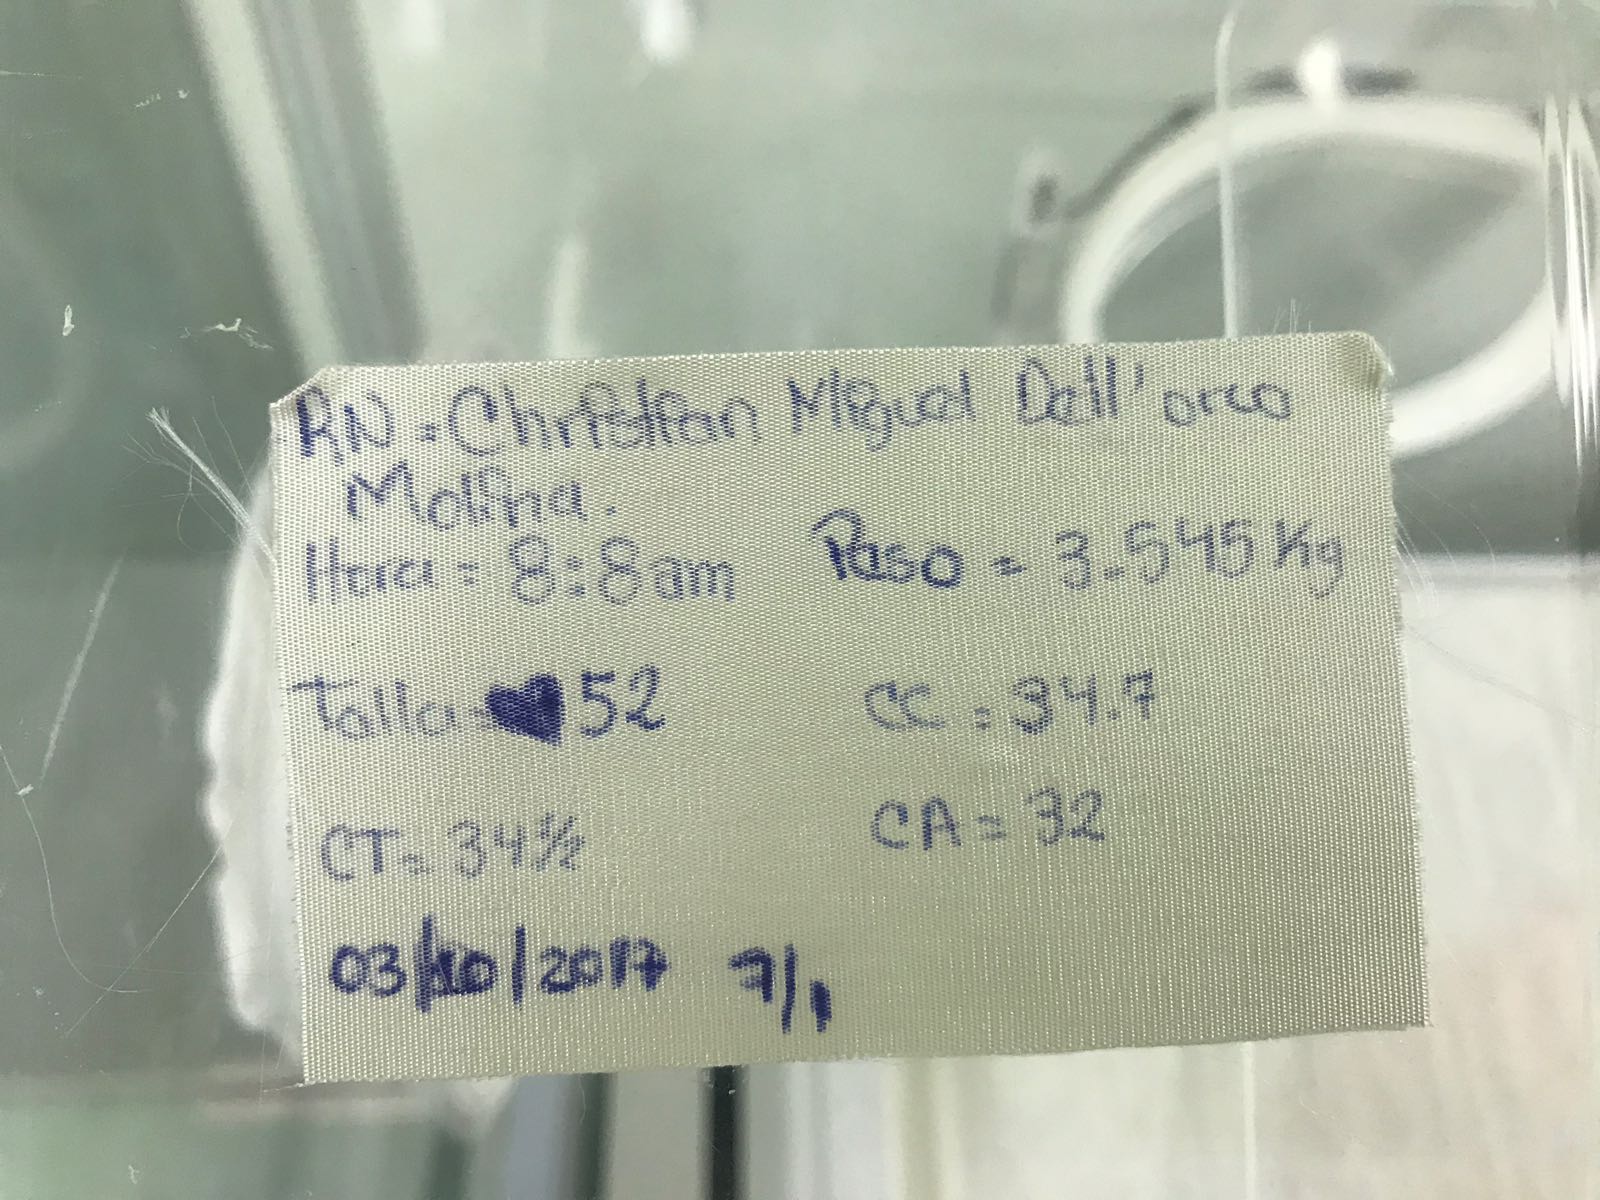 RN = Christian Miguel Dell'orco
Molina.
Hora = 8:8am Peso = 3.545 Kg
Talla - 52 CC = 34.7
CT = 34 1/2 CA = 32
03/10/2017 7/1